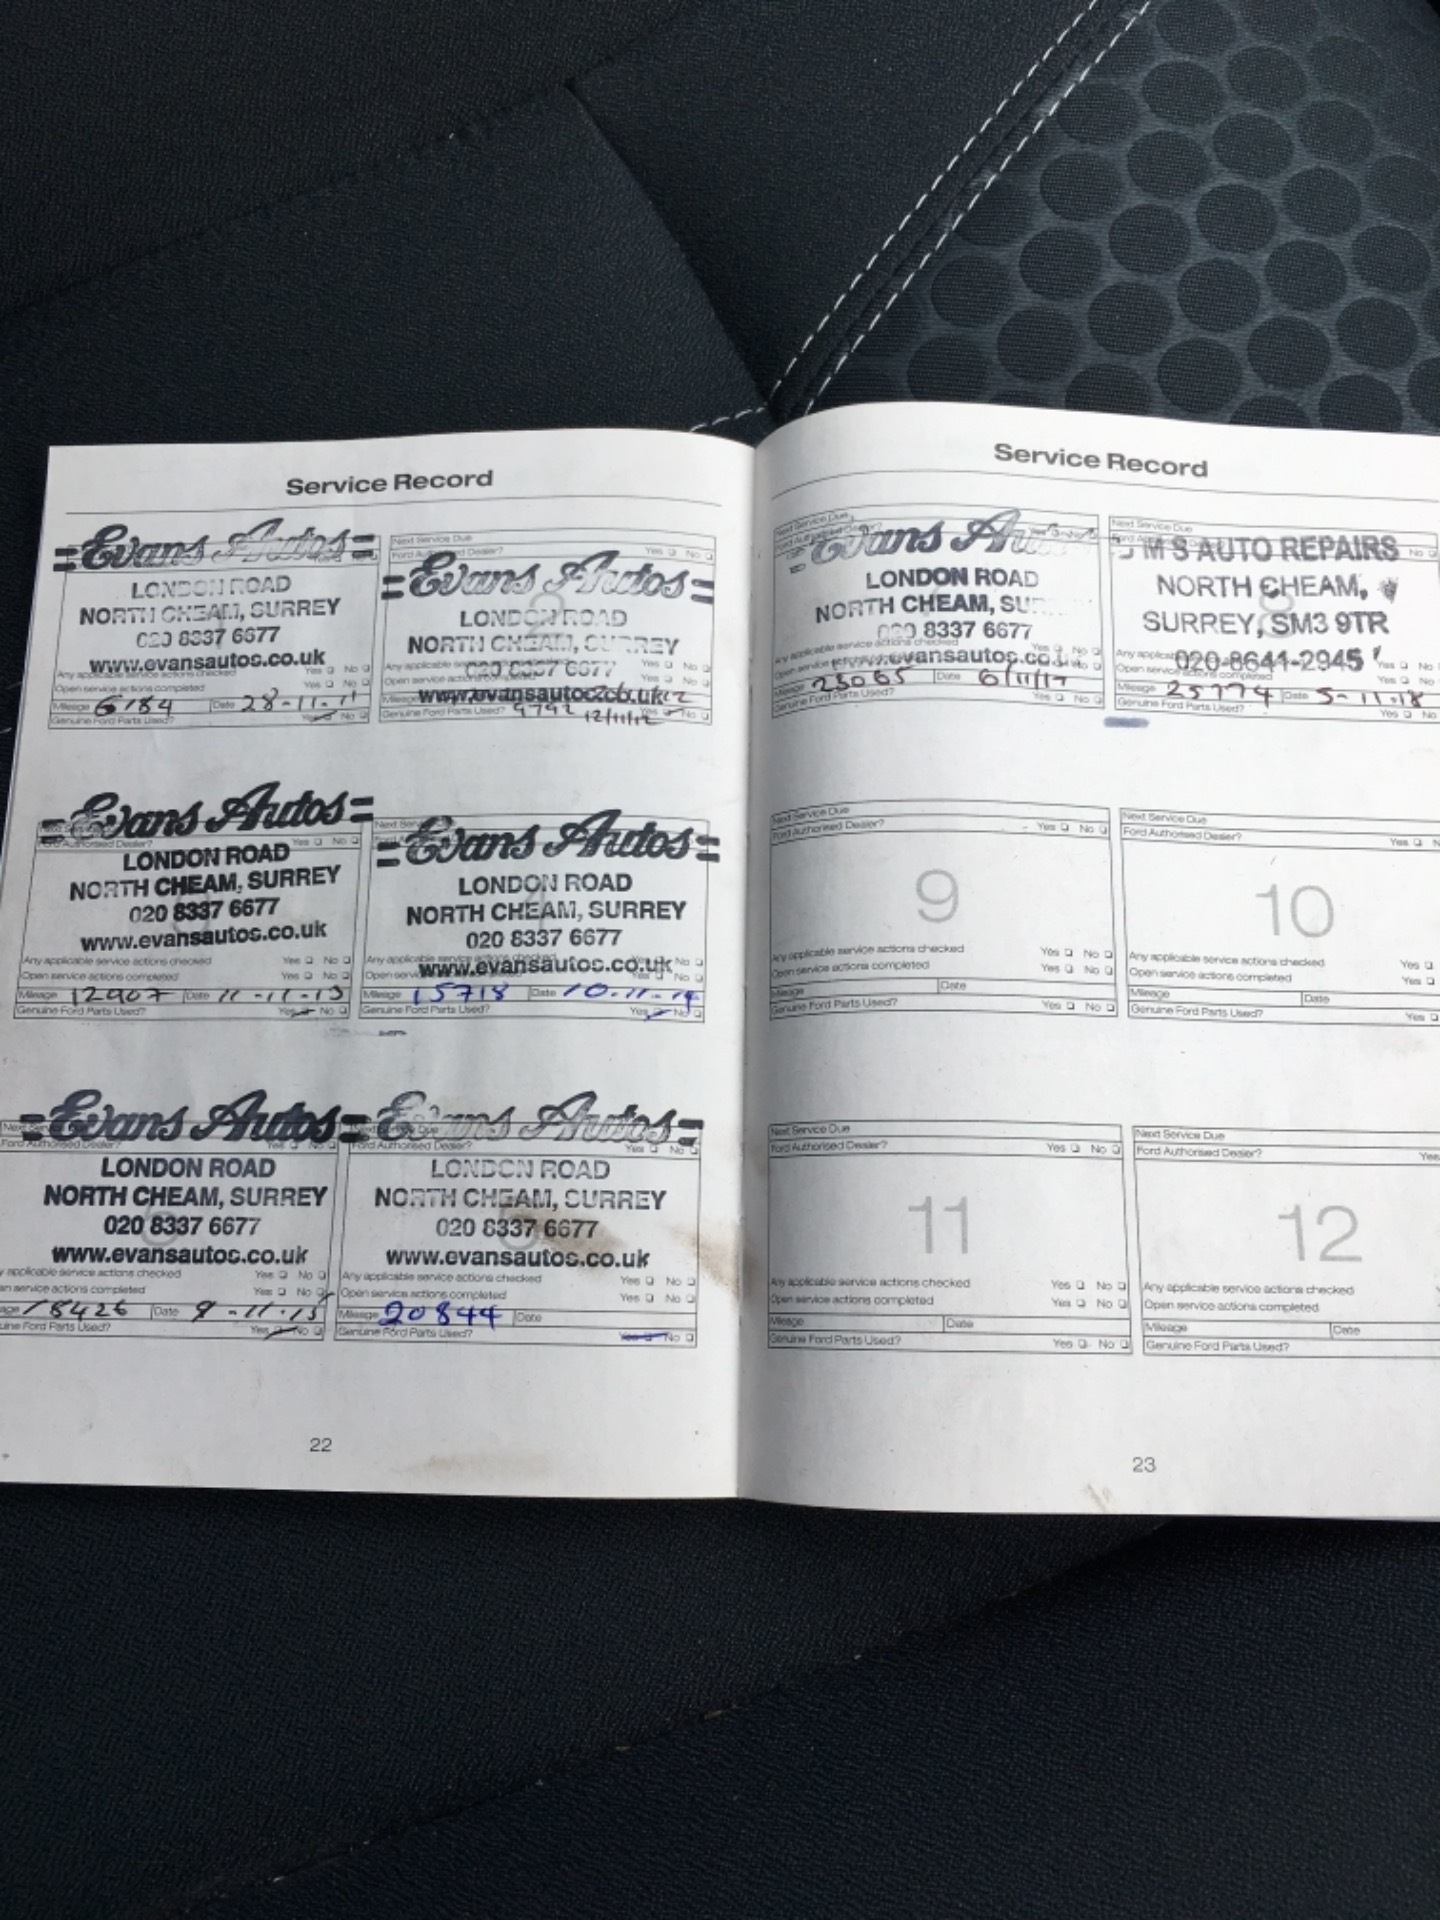 Service Record
Evans Autos
LONDON ROAD
NORTH CHEAM, SURREY
020 8337 6677
www.evansautos.co.uk
Any applicable service actions checked Yes No
Open service actions completed Yes No
Mileage 6184 Date 28-11-11
Genuine Ford Parts Used? Yes No
Next Service Due
Ford Authorised Dealer? Yes No
Evans Autos
LONDON ROAD
NORTH CHEAM, SURREY
020 8337 6677
www.evansautos.co.uk
Any applicable Yes No
Genuine Ford Parts Used? 9792 12/11/12 Yes No
Evans Autos
Ford Authorised Dealer? Yes No
LONDON ROAD
NORTH CHEAM, SURREY
020 8337 6677
www.evansautos.co.uk
Any applicable service actions checked Yes No
Open service actions completed Yes No
Mileage 12907 Date 11-11-13
Genuine Ford Parts Used? Yes No
Evans Autos
LONDON ROAD
4
NORTH CHEAM, SURREY
020 8337 6677
www.evansautos.co.uk
Mileage 15718 Date 10-11-14
Genuine Ford Parts Used? Yes No
Evans Autos
Ford Authorised Dealer? Yes No
LONDON ROAD
NORTH CHEAM, SURREY
020 8337 6677
www.evansautos.co.uk
applicable service actions checked Yes No
service actions completed Yes No
18426 Date 9-11-15
Ford Parts Used? Yes No
Evans Autos
Ford Authorised Dealer? Yes No
LONDON ROAD
NORTH CHEAM, SURREY
020 8337 6677
www.evansautos.co.uk
Any applicable service actions checked Yes No
Open service actions completed Yes No
Mileage 20844 Date
Genuine Ford Parts Used? Yes No
22
Service Record
Next Service Due
Evans
LONDON ROAD
NORTH CHEAM,
8337 6677
Any applicable service actions checked
www.evansautos.co
Mileage 23065 Date 6/11/17
Genuine Ford Parts Used? Yes No
Next Service Due
M S AUTO REPAIRS
NORTH CHEAM,
8
SURREY, SM3 9TR
020-8641-2945
Open service actions completed Yes No
Mileage 25774 Date 5-11-18
Genuine Ford Parts Used? Yes No
Next Service Due
Ford Authorised Dealer? Yes No
9
Any applicable service actions checked Yes No
Open service actions completed Yes No
Mileage Date
Genuine Ford Parts Used? Yes No
Next Service Due
Ford Authorised Dealer? Yes
10
Any applicable service actions checked Yes
Open service actions completed Yes
Mileage Date
Genuine Ford Parts Used? Yes
Next Service Due
Ford Authorised Dealer? Yes No
11
Any applicable service actions checked Yes No
Open service actions completed Yes No
Mileage Date
Genuine Ford Parts Used? Yes No
Next Service Due
Ford Authorised Dealer? Yes
12
Any applicable service actions checked Yes
Open service actions completed Yes
Mileage Date
Genuine Ford Parts Used? Yes
23